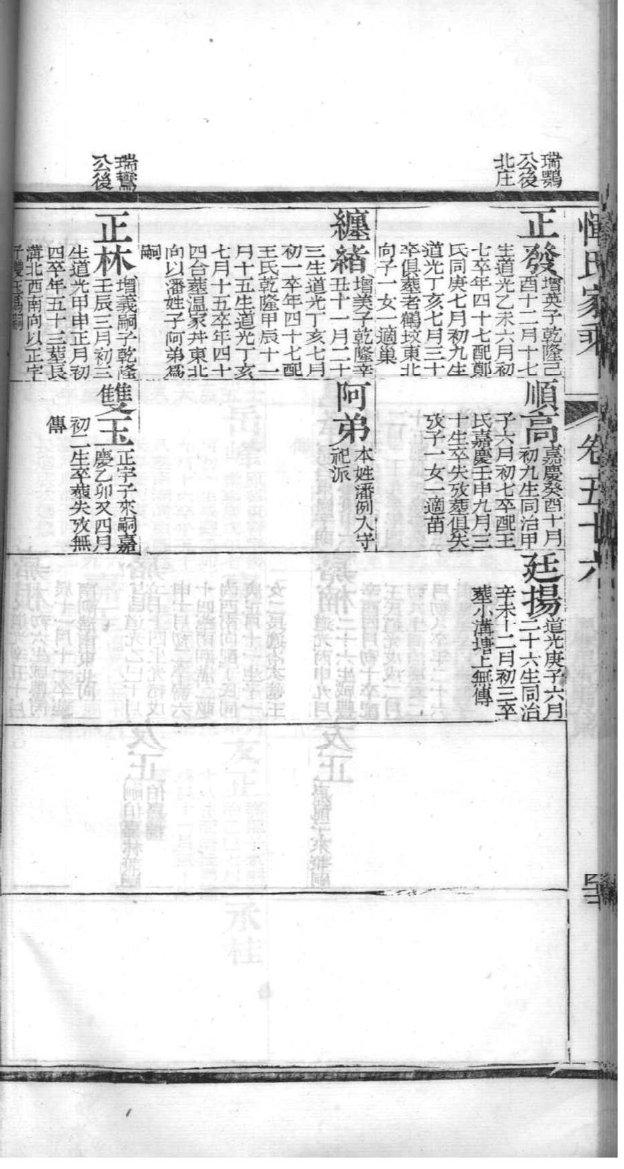 惲氏家乘
卷五十六
瑞鸚
公後
北庄
正發
增英子乾隆己
酉十二月十七
生道光乙未六月初
七卒年四十七配鄭
氏同庚七月初九生
道光丁亥七月三十
卒俱葬老鶴坟東北
向子一女一適巢
順高
嘉慶癸酉十月
初九生同治甲
子六月初七卒配王
氏嘉慶壬申九月三
十生卒失攷葬俱失
攷子一女一適苗
廷揚
道光庚子六月
二十六生同治
辛未十二月初三卒
葬小溝塘上無傳
纏緒
增美子乾隆辛
丑十一月二十
三生道光丁亥七月
初一卒年四十七配
王氏乾隆甲辰十一
月十五生道光丁亥
七月十五卒年四十
四合葬溫家井東北
向以潘姓子阿弟爲
嗣
阿弟
本姓潘例入守
祀派
瑞鸞
公後
正林
增義嗣子乾隆
壬辰三月初三
生道光甲申正月初
四卒年五十三葬長
溝北西南向以正字
子雙玉爲嗣
雙玉
正字子來嗣嘉
慶乙卯又四月
初二生卒葬失攷無
傳